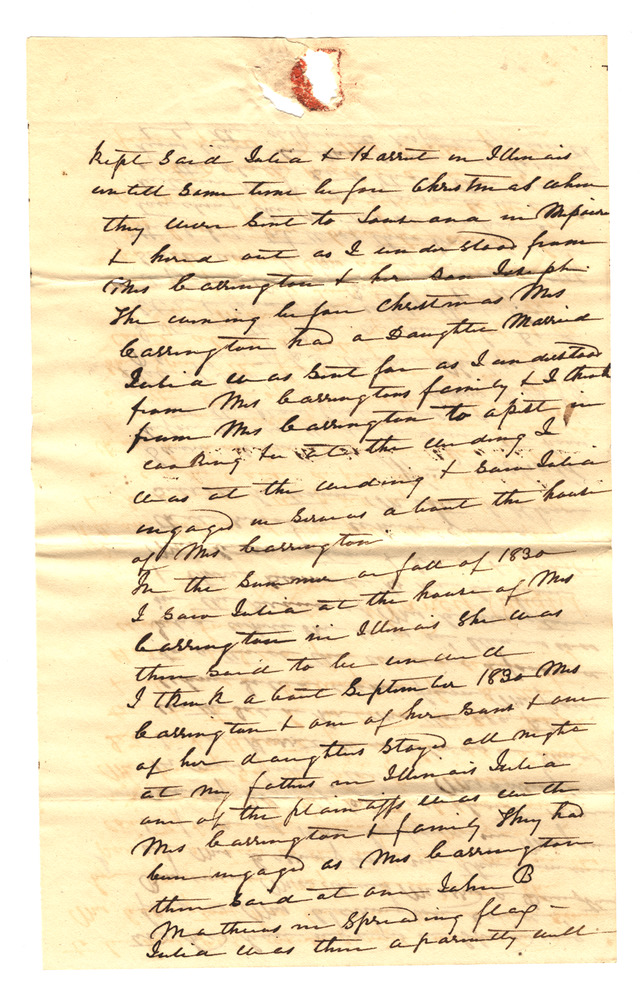 kept said Julia & Harriet in Illinois
untill some time before Christmas when
they were sent to Louseana in Mssouri
& hired out as I understood from
Mrs Carrington & her son Joseph.
The evening before Christmas Mrs
Carrington had a Daughter Married
Julia was sent for as I understood
from Mrs Carringtons family & I think
from Mrs Carrington to asist in
cooking &c at the weding I
was at the weding & saw Julia
ingaged in servis about the house
of Mrs Carrington
In the Summer or fall of 1830
I saw Julia at the house of Mrs
Carrington in Illinois She was
then said to be unwell
I think about September 1830 Mrs
Carrington & one of her sons & one
of her daughters stayed all night
at my fathers in Illinois Julia
one of the plaintiffs was with
Mrs Carrington & family They had
been ingaged as Mrs Carrington
then said at one John B
Mathews in Spreading flax –
Julia was then aparently well